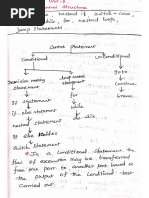 Unit-2
Control Structure
nested if switch-case,
while, for, nested loops,
jump statements
Control Statement
Conditional
Unconditional
Decision making statement
Loop control statement
goto
Continue
break
If statement
for
If else statement
while
do while
If else ladder
Switch statement
In a conditional statement the
flow of execution may be transferred
from one part to another part based on
the output of the conditional test
Carried out.